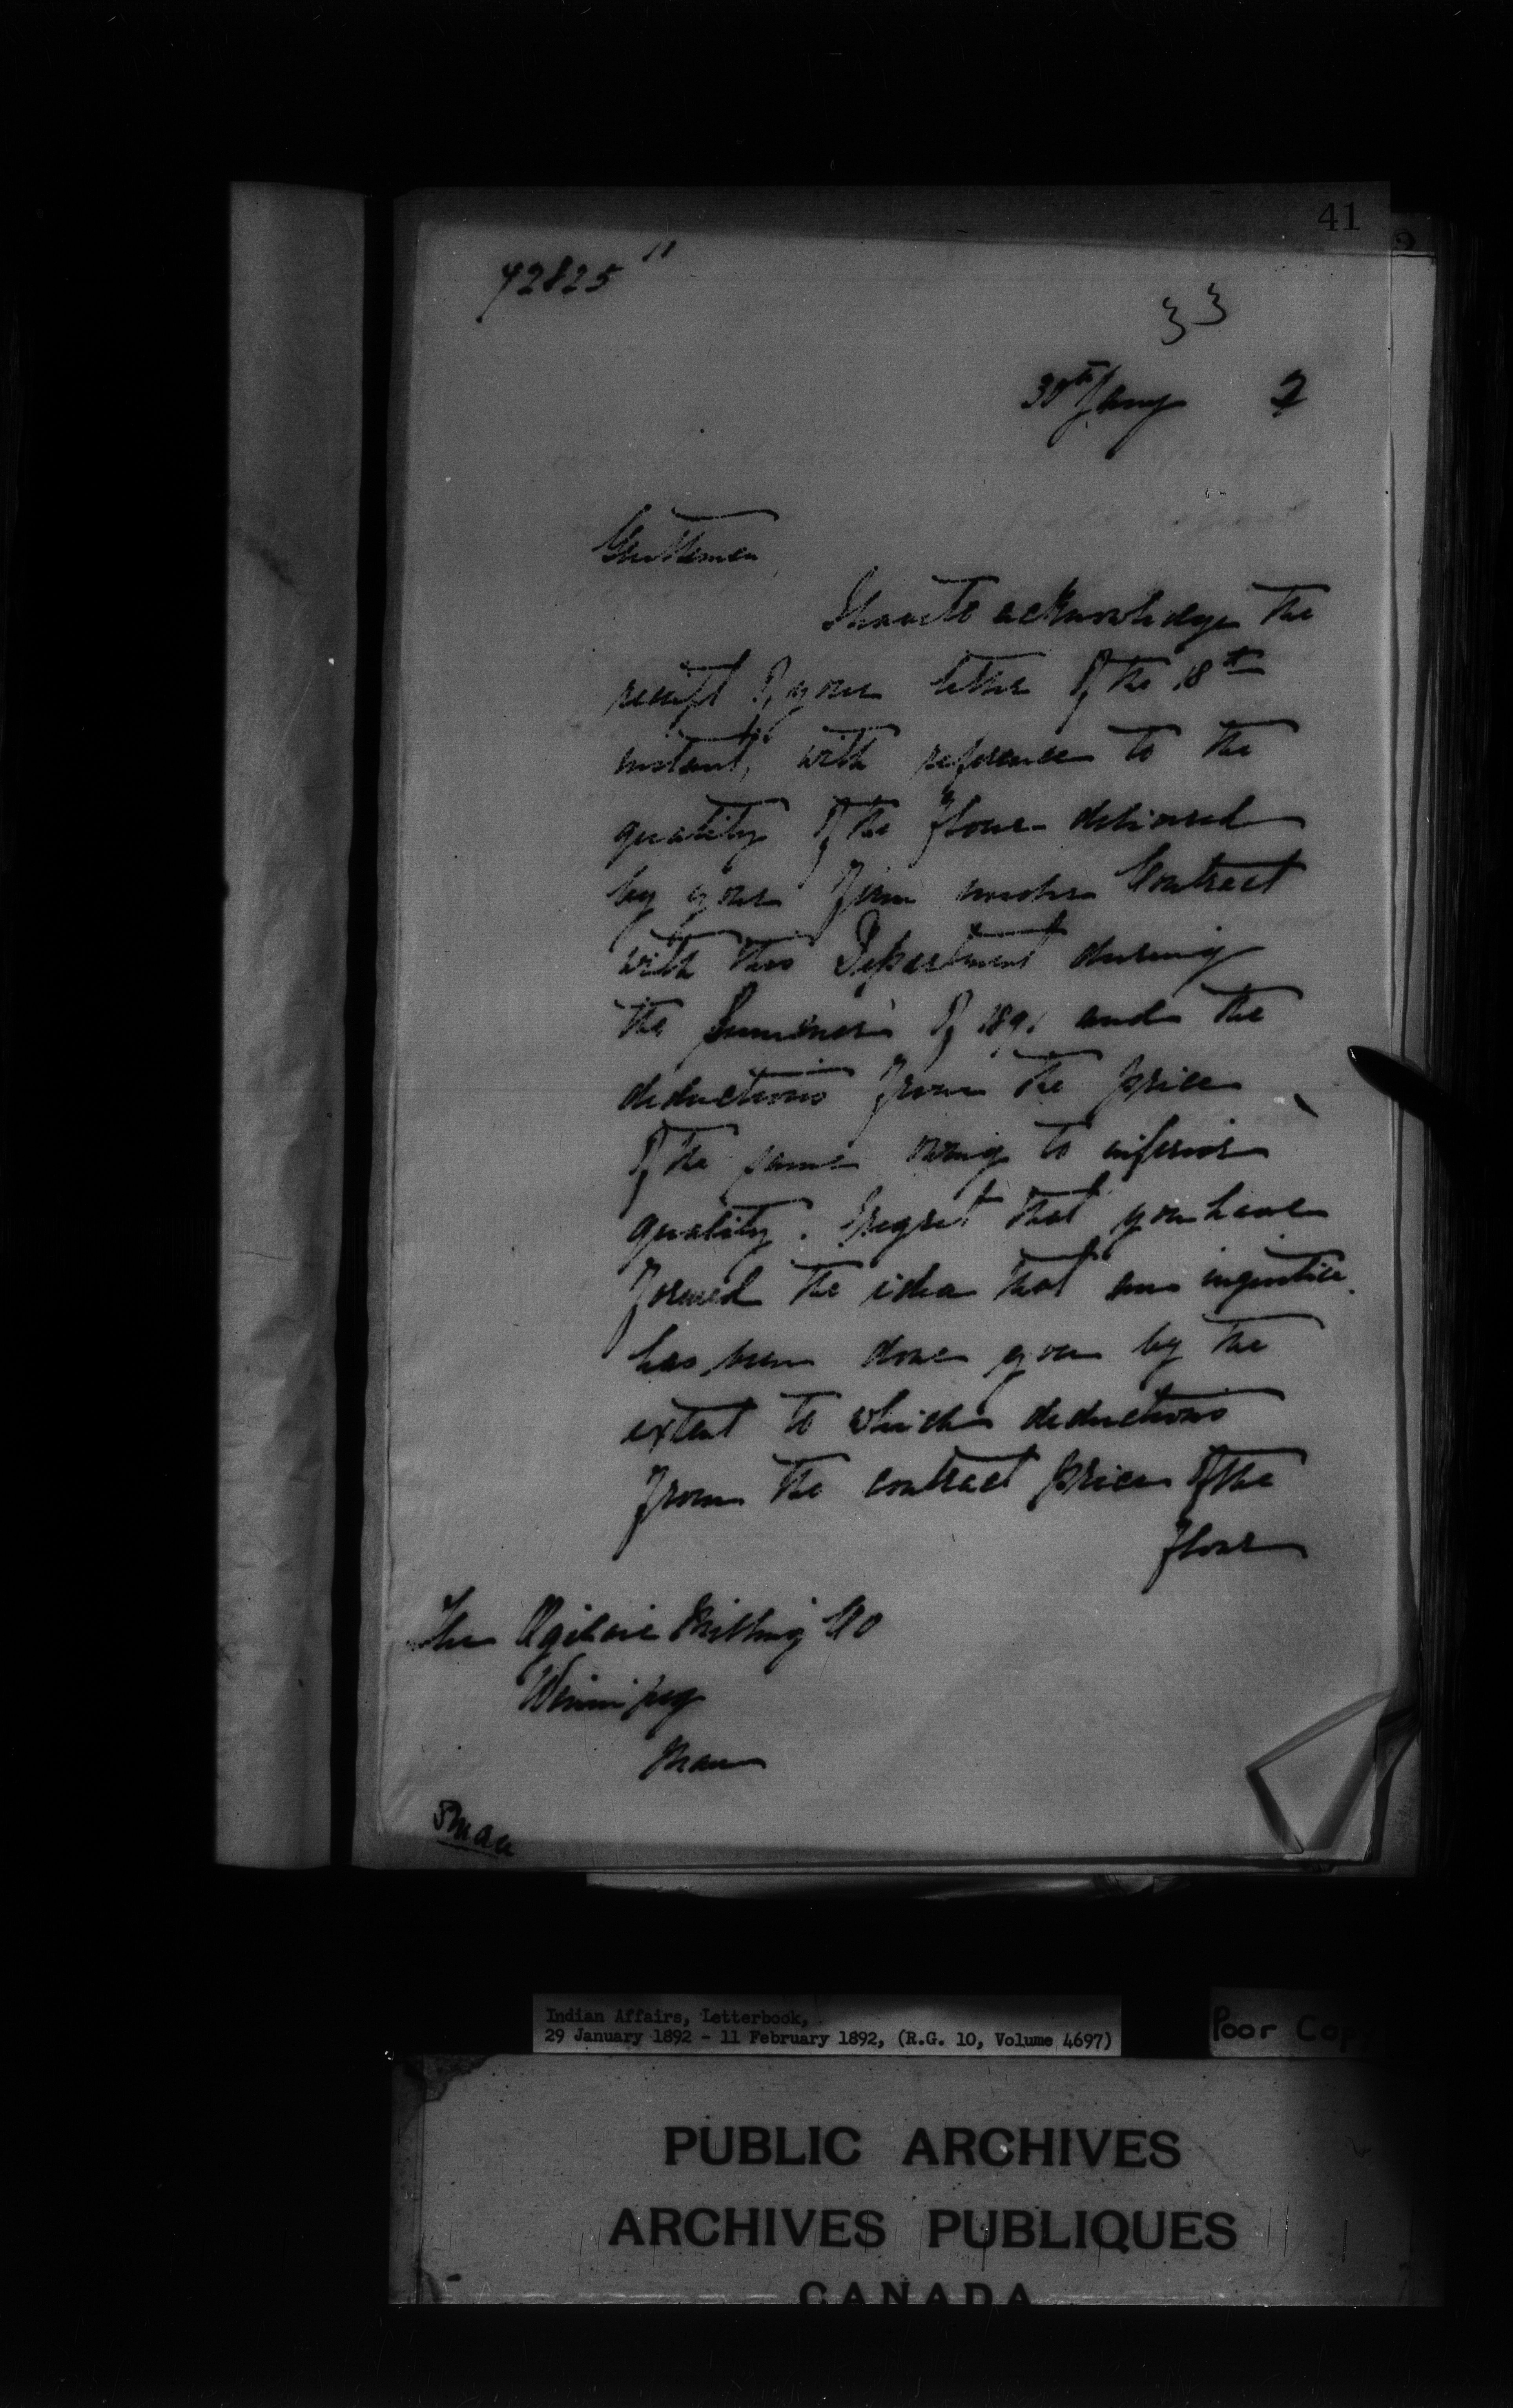 41
72825 11
33
30th Jany 2
Gentlemen,
I have to acknowledge the
receipt of your letter of the 18th
instant, with reference to the
quality of the flour delivered
by your firm under Contract
with this Department during
the Summer of 1891 and the
deductions from the price
of the same owing to inferior
quality. I regret that you have
formed the idea that an injustice
has been done you by the
extent to which deductions
from the contract price of the
flour
The Ogilvie Milling Co
Winnipeg
Man
Indian Affairs, Letterbook,
29 January 1892 - 11 February 1892, (R.G. 10, Volume 4697)
Poor Copy
PUBLIC ARCHIVES
ARCHIVES PUBLIQUES
CANADA